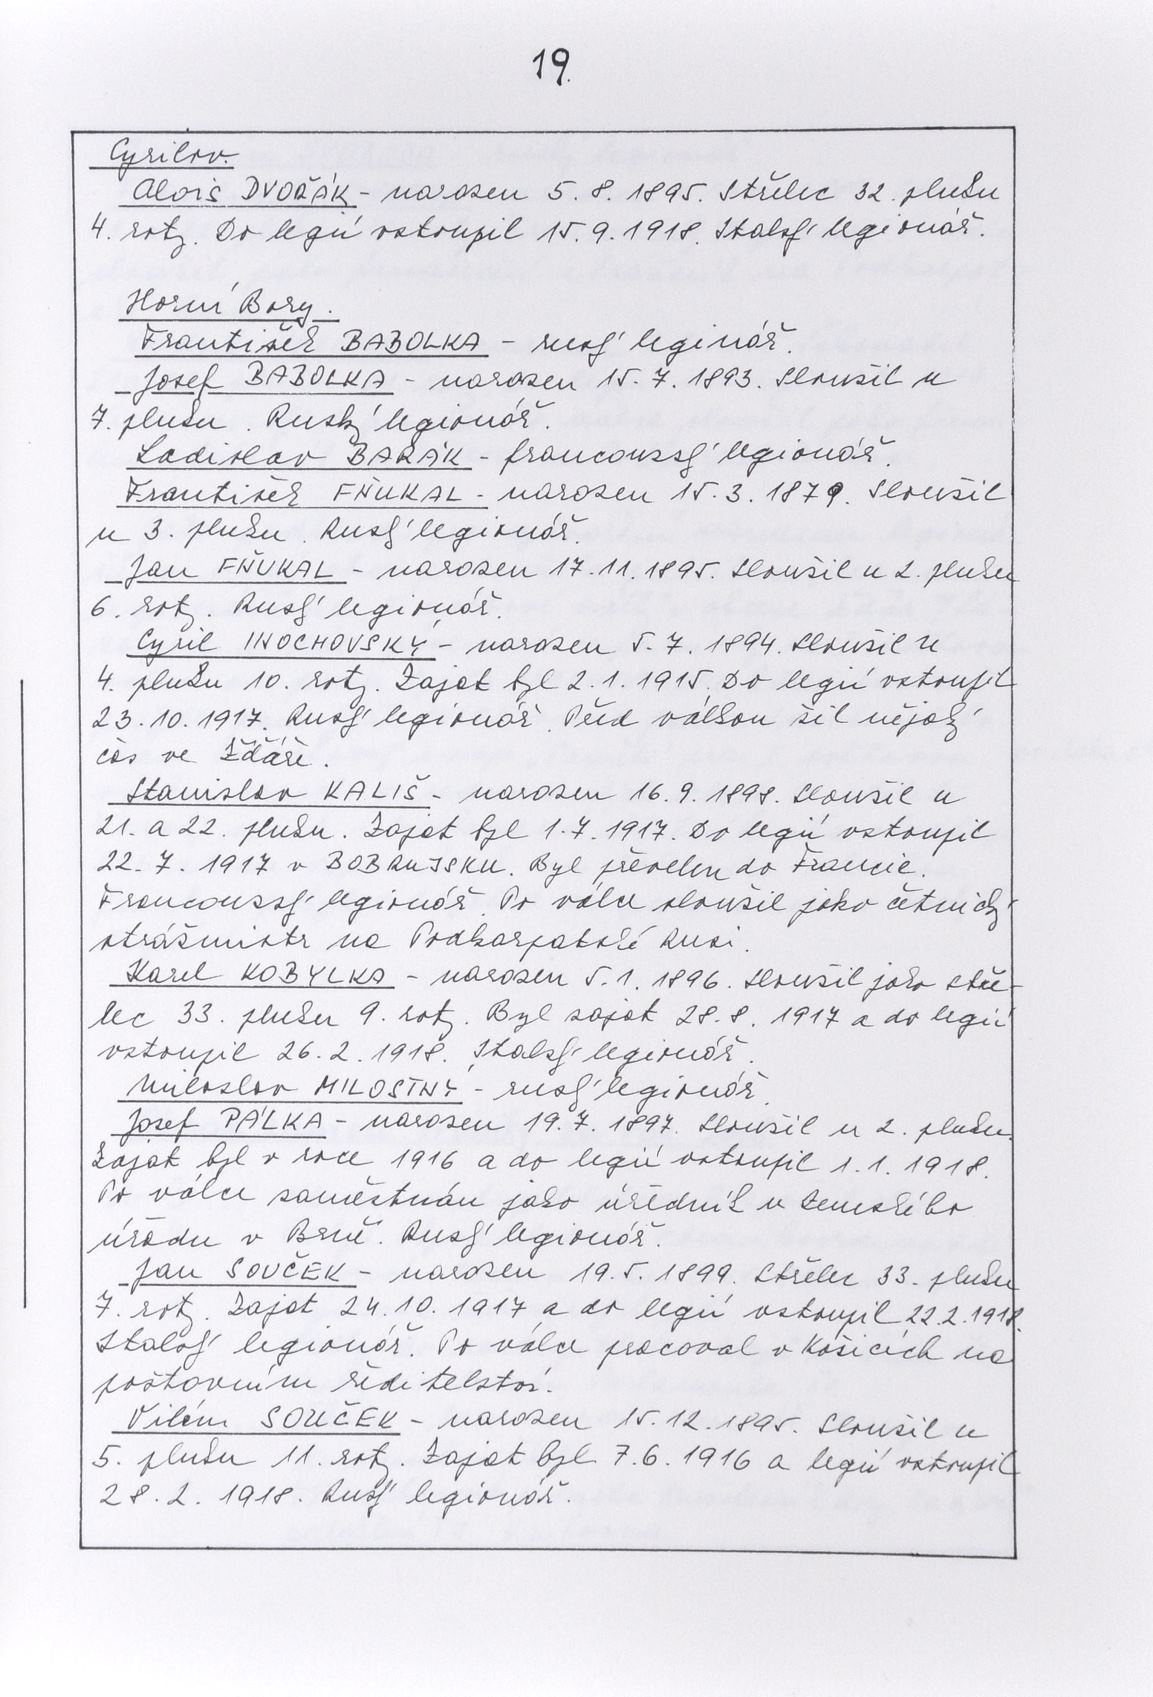 19.
Cyrilov.
Alois DVOŘÁK - narozen 5.8.1895. Střelec 32. pluku
4. roty. Do legií vstoupil 15.9.1918. Italský legionář.
Horní Bory.
František BABOLKA - ruský leginář.
Josef BABOLKA - narozen 15.7.1893. Sloužil u
7. pluku. Ruský legionář.
Ladislav BARÁK - francouzský legionář.
František FŇUKAL - narozen 15.3.1879. Sloužil
u 3. pluku. Ruský legionář.
Jan FŇUKAL - narozen 17.11.1895. Sloužil u 2. pluku
6. roty. Ruský legionář.
Cyril INOCHOVSKÝ - narozen 5.7.1894. Sloužil u
4. pluku 10. roty. Zajat byl 2.1.1915. Do legií vstoupil
23.10.1917. Ruský legionář. Před válkou žil nějaký
čas ve Žďáře.
Stanislav KALIŠ - narozen 16.9.1898. Sloužil u
21. a 22. pluku. Zajat byl 1.7.1917. Do legií vstoupil
22.7.1917 v BOBRUJSKU. Byl převelen do Francie.
Francouzský legionář. Po válce sloužil jako četnický
strážmistr na Podkarpatské Rusi.
Karel KOBYLKA - narozen 5.1.1896. Sloužil jako stře-
lec 33. pluku 9. roty. Byl zajat 28.8.1917 a do legií
vstoupil 26.2.1918. Italský legionář.
Miloslav MILOSTNÝ - ruský legionář.
Josef PÁLKA - narozen 19.7.1897. Sloužil u 2. pluku.
Zajat byl v roce 1916 a do legií vstoupil 1.1.1918.
Po válce zaměstnán jako úředník u Zemského
úřadu v Brně. Ruský legionář.
Jan SOUČEK - narozen 19.5.1899. Střelec 33. pluku
7. roty. Zajat 24.10.1917 a do legií vstoupil 22.2.1918.
Italský legionář. Po válce pracoval v Košicích na
poštovním ředitelství.
Vilém SOUČEK - narozen 15.12.1895. Sloužil u
5. pluku 11. roty. Zajat byl 7.6.1916 a legií vstoupil
28.2.1918. Ruský legionář.